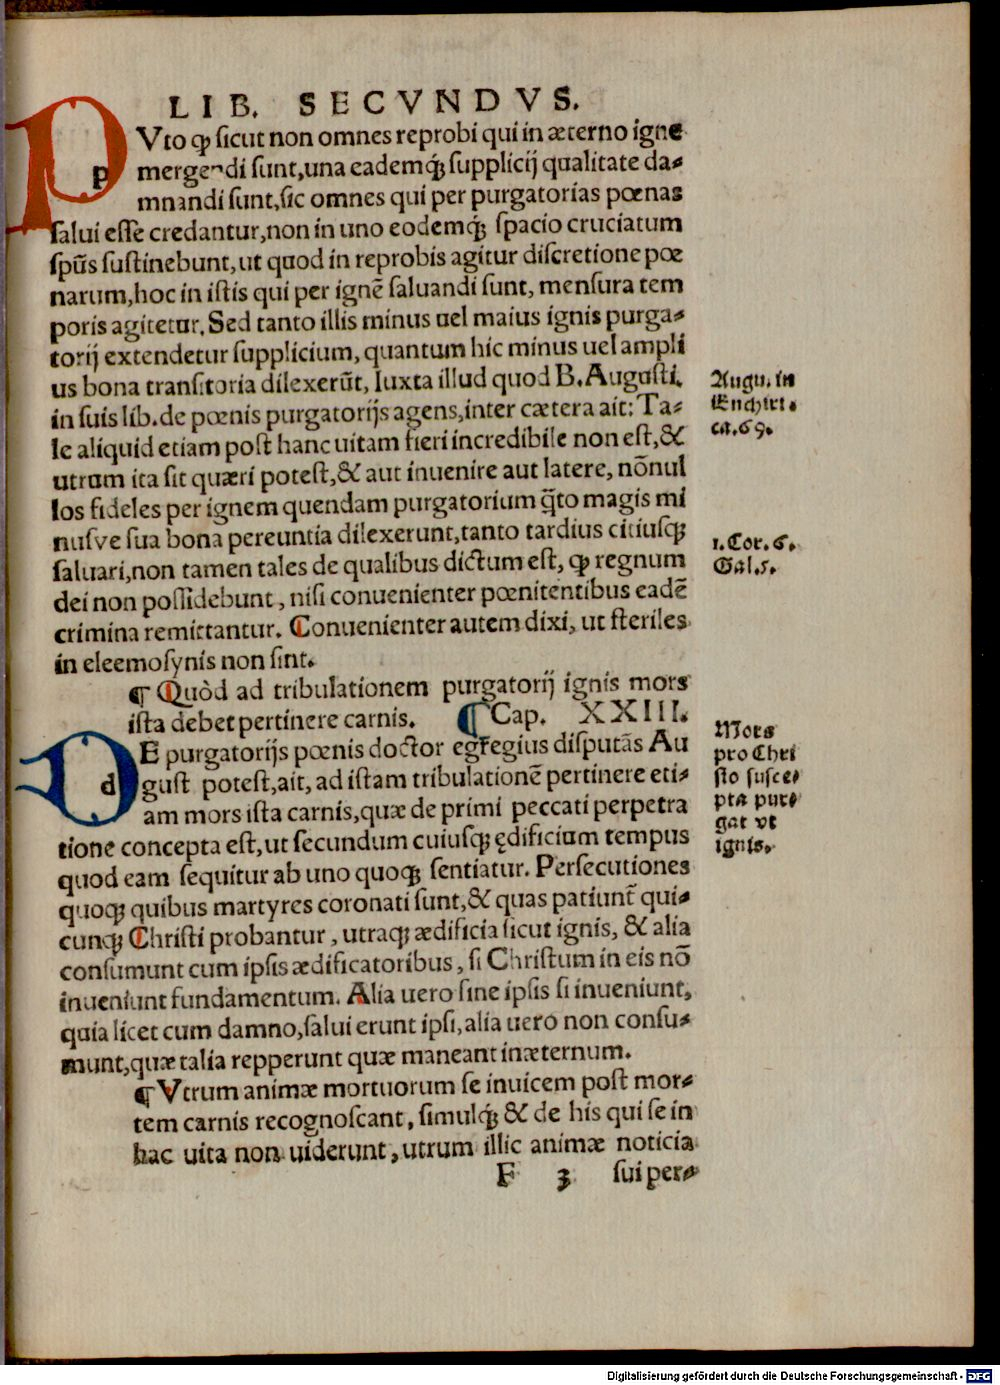 LIB. SECVNDVS.
PVto ꝙ sicut non omnes reprobi qui in æterno igne
mergendi sunt, una eademq́ꝫ supplicij qualitate da-
mnandi sunt, sic omnes qui per purgatorias pœnas
salui esse credantur, non in uno eodemq́ꝫ spacio cruciatum
spūs sustinebunt, ut quod in reprobis agitur discretione pœ
narum, hoc in istis qui per ignē saluandi sunt, mensura tem
poris agitetur. Sed tanto illis minus uel maius ignis purga-
torij extendetur supplicium, quantum hic minus uel ampli
us bona transitoria dilexerūt, Iuxta illud quod B. Augusti.
in suis lib. de pœnis purgatorijs agens, inter cætera ait: Ta-
le aliquid etiam post hanc uitam fieri incredibile non est, &
utrum ita sit quæri potest, & aut inuenire aut latere, nōnul
los fideles per ignem quendam purgatorium q̄to magis mi
nusve sua bona pereuntia dilexerunt, tanto tardius citiusqꝫ
saluari, non tamen tales de qualibus dictum est, ꝙ regnum
dei non possidebunt, nisi conuenienter pœnitentibus eadē
crimina remittantur. Conuenienter autem dixi, ut steriles
in eleemosynis non sint.
Augu. in
Enchiri.
ca.69.
1. Cor. 6.
Gal.5.
¶ Quòd ad tribulationem purgatorij ignis mors
ista debet pertinere carnis. ¶ Cap. XXIII.
DE purgatorijs pœnis doctor egregius disputās Au
gust potest, ait, ad istam tribulationē pertinere eti-
am mors ista carnis, quæ de primi peccati perpetra
tione concepta est, ut secundum cuiusqꝫ ędificium tempus
quod eam sequitur ab uno quoqꝫ sentiatur. Persecutiones
quoqꝫ quibus martyres coronati sunt, & quas patiunt̄ qui-
cunqꝫ Christi probantur, utraqꝫ ædificia sicut ignis, & alia
consumunt cum ipsis ædificatoribus, si Christum in eis nō
inueniunt fundamentum. Alia uero sine ipsis si inueniunt,
quia licet cum damno, salui erunt ipsi, alia uero non consu-
munt, quæ talia repperunt quæ maneant inæternum.
Mors
pro Chri
sto susce-
pta pur-
gat vt
ignis.
¶ Vtrum animæ mortuorum se inuicem post mor-
tem carnis recognoscant, simulq́ꝫ & de his qui se in
hac uita non uiderunt, utrum illic animæ noticia
F 3 sui per-
Digitalisierung gefördert durch die Deutsche Forschungsgemeinschaft - DFG